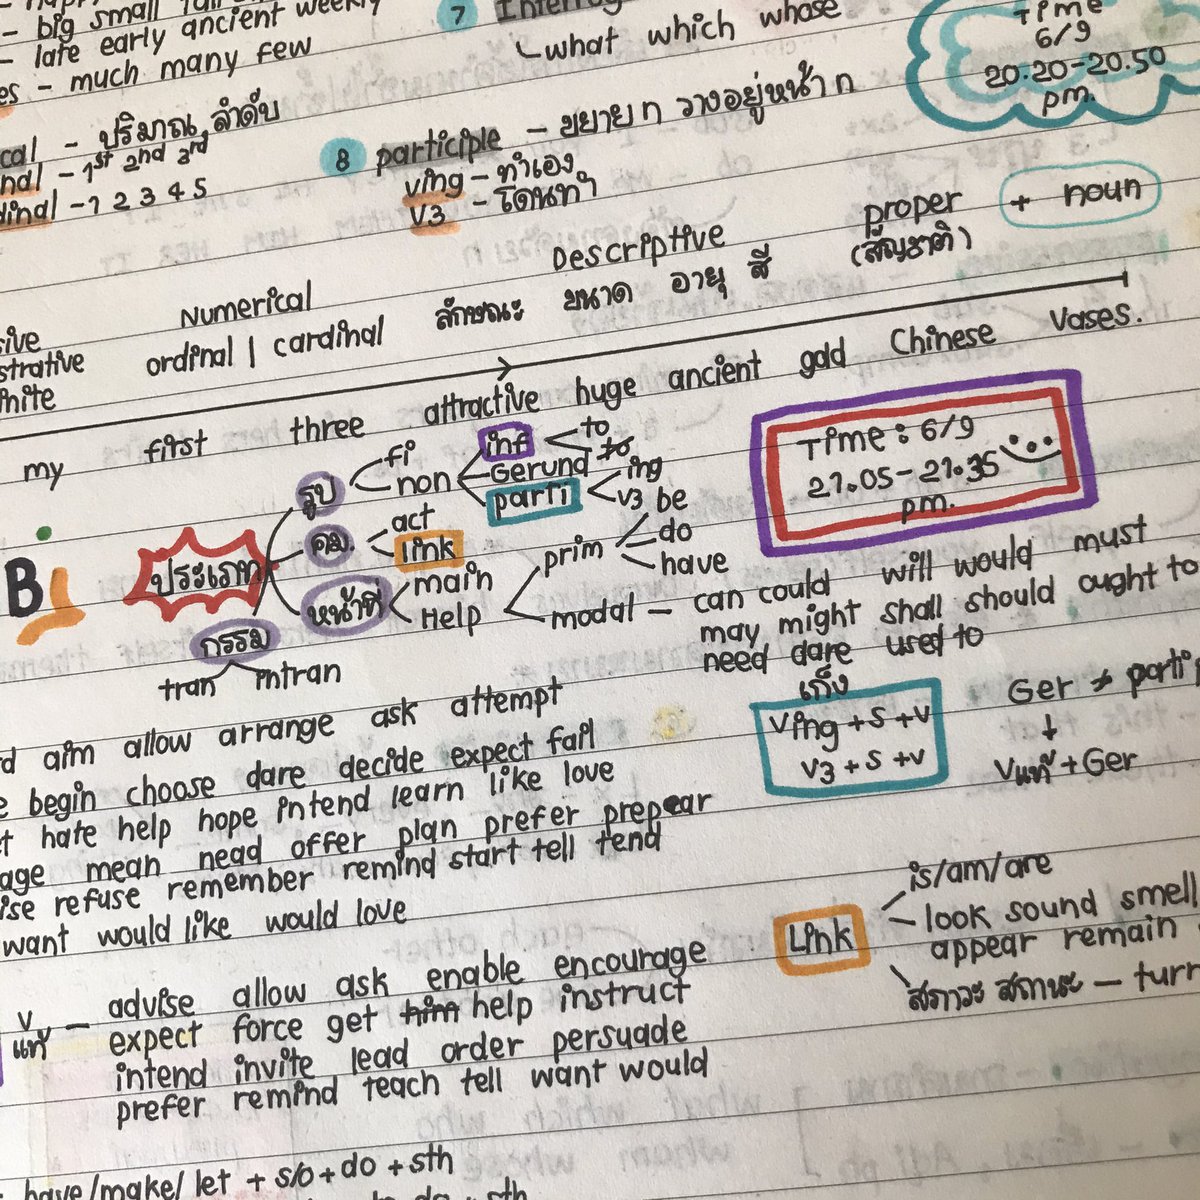 - big small tall
- late early ancient weekly
- much many few
7
what which whose
Time
6/9
20.20-20.50
pm.
- ปริมาณ, ลำดับ
- 1st 2nd 3rd
- 1 2 3 4 5
8 participle - ขยาย n วางอยู่หน้า n
ving - ทำเอง
V3 - โดนทำ
Numerical
ordinal | cardinal
Descriptive
ลักษณะ ขนาด อายุ สี
proper + noun
(สัญชาติ)
my first three attractive huge ancient gold Chinese Vases.
B
ประเภท
รูป
fi
non
inf
to
to
Gerund
parti
ing
v3
คม.
act
Link
หน้าที่
main
Help
prim
be
do
have
modal - can could will would must
may might shall should ought to
need dare used to
กรรม
tran intran
Time : 6/9
21.05-21.35
pm.
aim allow arrange ask attempt
begin choose dare decide expect fail
hate help hope intend learn like love
mean need offer plan prefer prepear
refuse remember remind start tell tend
want would like would love
เก็ง
Ving + S + V
V3 + S + V
Ger ≠ parti
↓
Vแท้ + Ger
Link
is/am/are
look sound smell
appear remain
สภาวะ สถานะ - turn
V แท้ - advise allow ask enable encourage
expect force get him help instruct
intend invite lead order persuade
prefer remind teach tell want would
have/make/let + s/o + do + sth